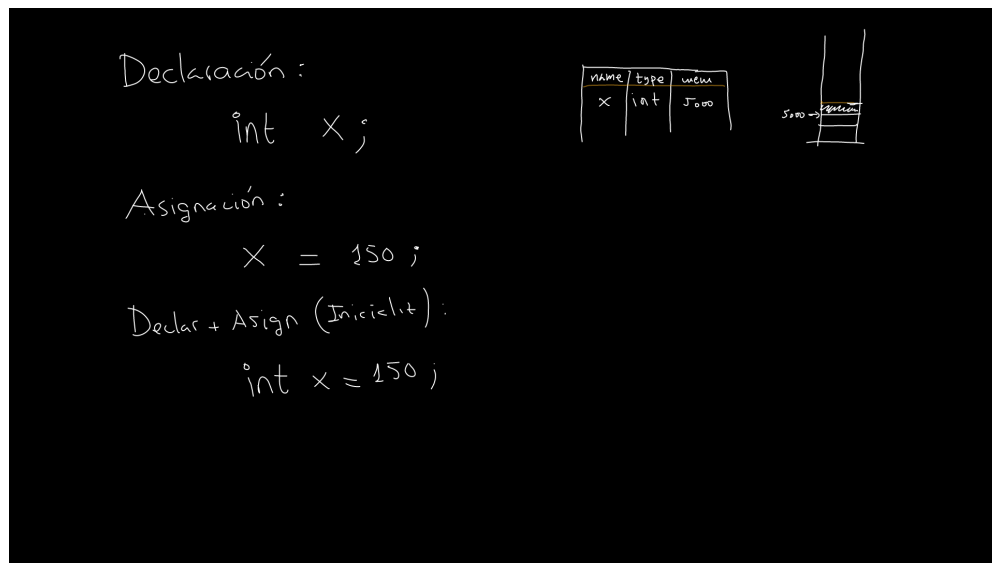 Declaración:
int x;
Asignación:
x = 150;
Declar + Asign (Inicialit):
int x = 150;
name type mem
x int 5000
5000